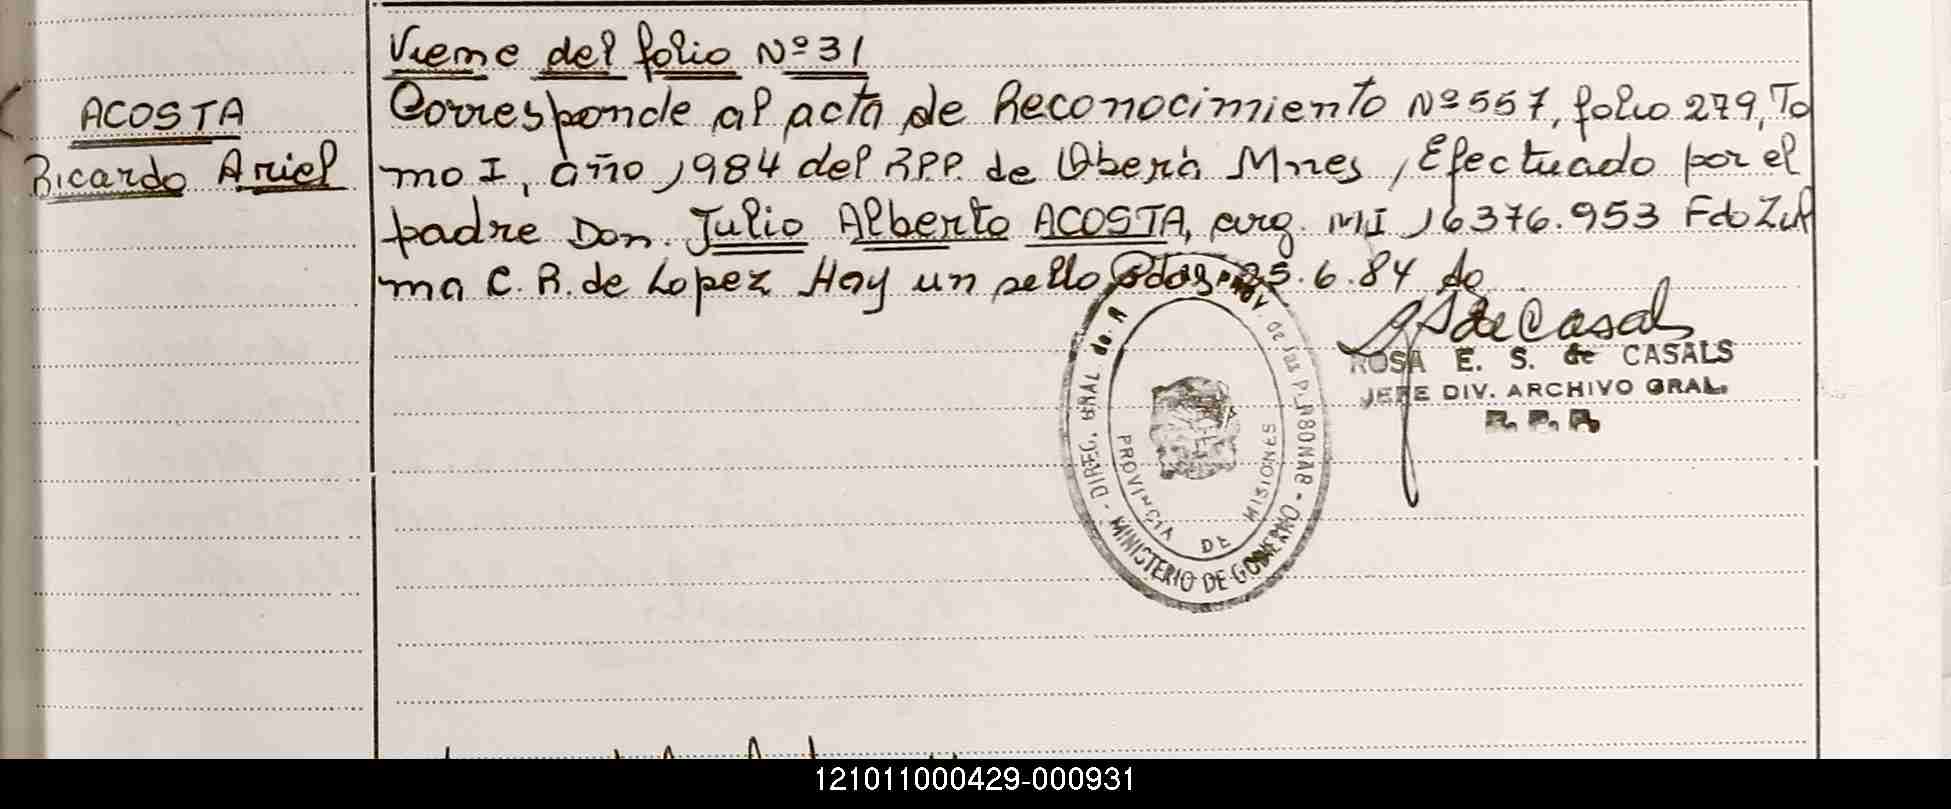 Viene del folio Nº 31
ACOSTA
Ricardo Ariel
Corresponde al acta de Reconocimiento Nº 557, folio 279, To
mo I, año 1984 del RPP. de Oberá Mnes, Efectuado por el
padre Don. Julio Alberto ACOSTA, arg. MI 16376.953 Fdo Zul
ma C. R. de Lopez Hay un sello Pdas. 25.6.84
ROSA E. S. de CASALS
JEFE DIV. ARCHIVO GRAL.
R. P. P.
DIREC. GRAL de
DE LAS PERSONAS
MINISTERIO DE GOBIERNO
PROVINCIA DE MISIONES
121011000429-000931